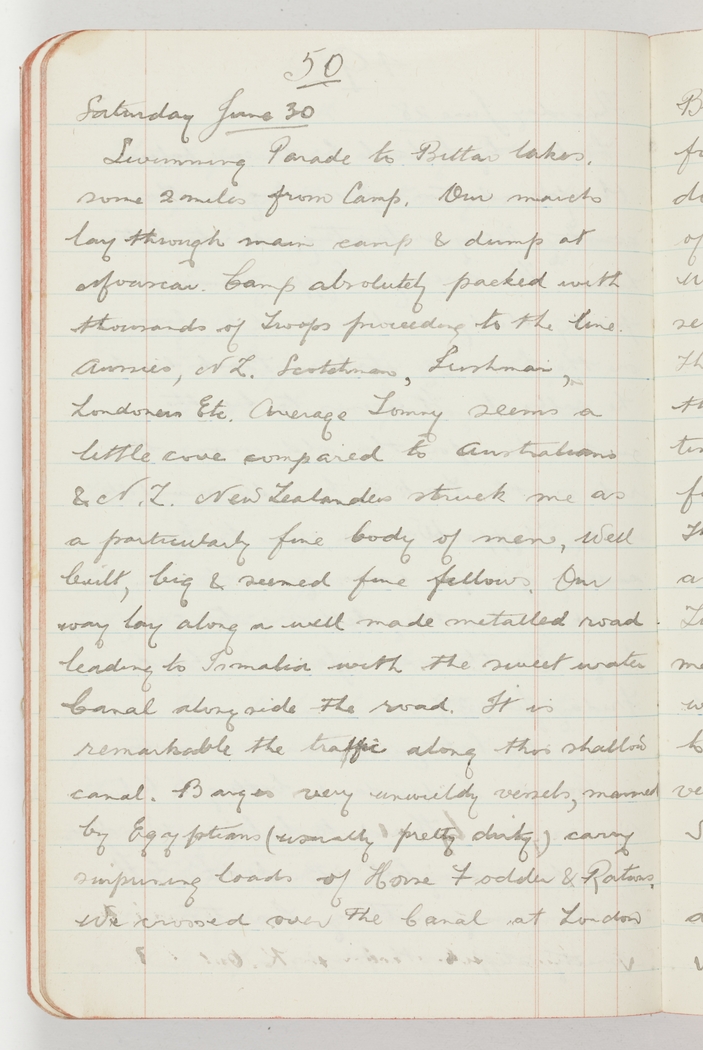 50
Saturday June 30
Swimming Parade to Bitter lakes,
some 2 miles from Camp. Our march
lay through main camp & dump at
Moascar. Camp absolutely packed with
thousands of Troops proceeding to the line.
Aussies, N.Z. Scotchmen, Irishmen,
Londoners Etc. Average Tommy seems a
little cove compared to Australians
& N.Z. New Zealanders struck me as
a particularly fine body of men, well
built, big & seemed fine fellows. Our
way lay along a well made metalled road
leading to Ismalia with the sweet water
Canal alongside the road. It is
remarkable the traffic along this shallow
canal. Barges very unwieldy vessels, manned
by Egyptians (usually pretty dirty) carry
surprising loads of Horse Fodder & Rations.
We crossed over the Canal at London